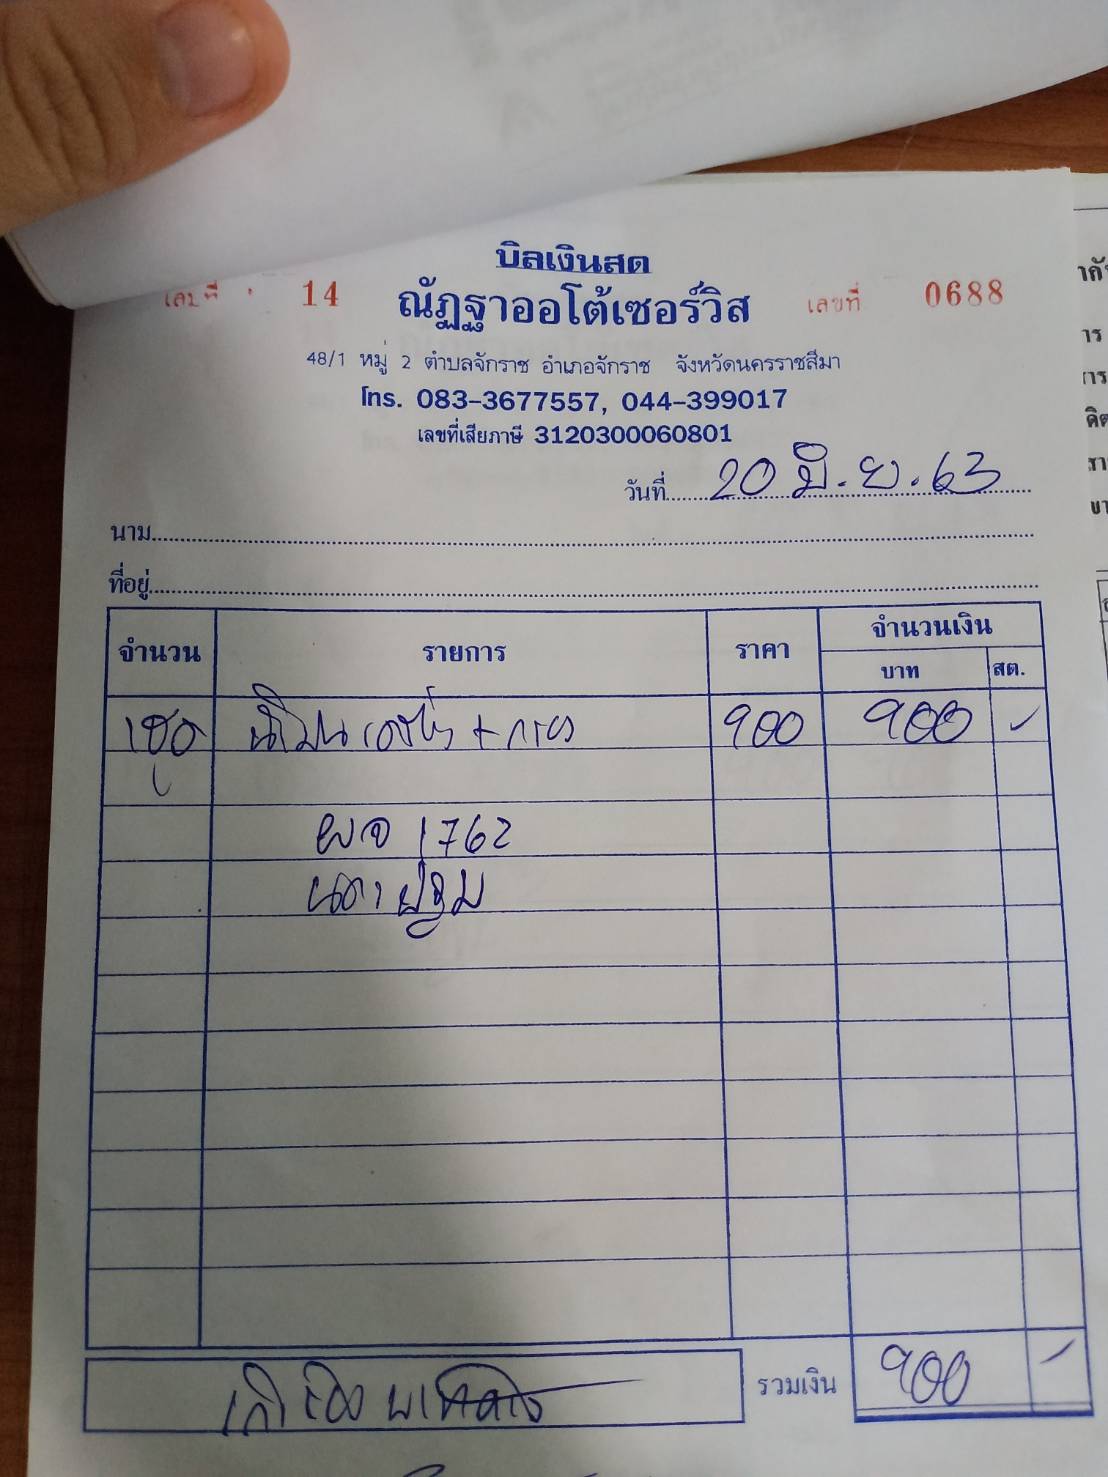 บิลเงินสด
เล่มที่ 14 ณัฏฐาออโต้เซอร์วิส เลขที่ 0688
48/1 หมู่ 2 ตำบลจักราช อำเภอจักราช จังหวัดนครราชสีมา
โทร. 083-3677557, 044-399017
เลขที่เสียภาษี 3120300060801
วันที่ 20 มิ.ย.63
นาม
ที่อยู่
จำนวน รายการ ราคา จำนวนเงิน
บาท สต.
1 ชุด น้ำมันเครื่อง + กรอง 900 900
ผจ 1762
นครปฐม
เก้าร้อยบาทถ้วน รวมเงิน 900